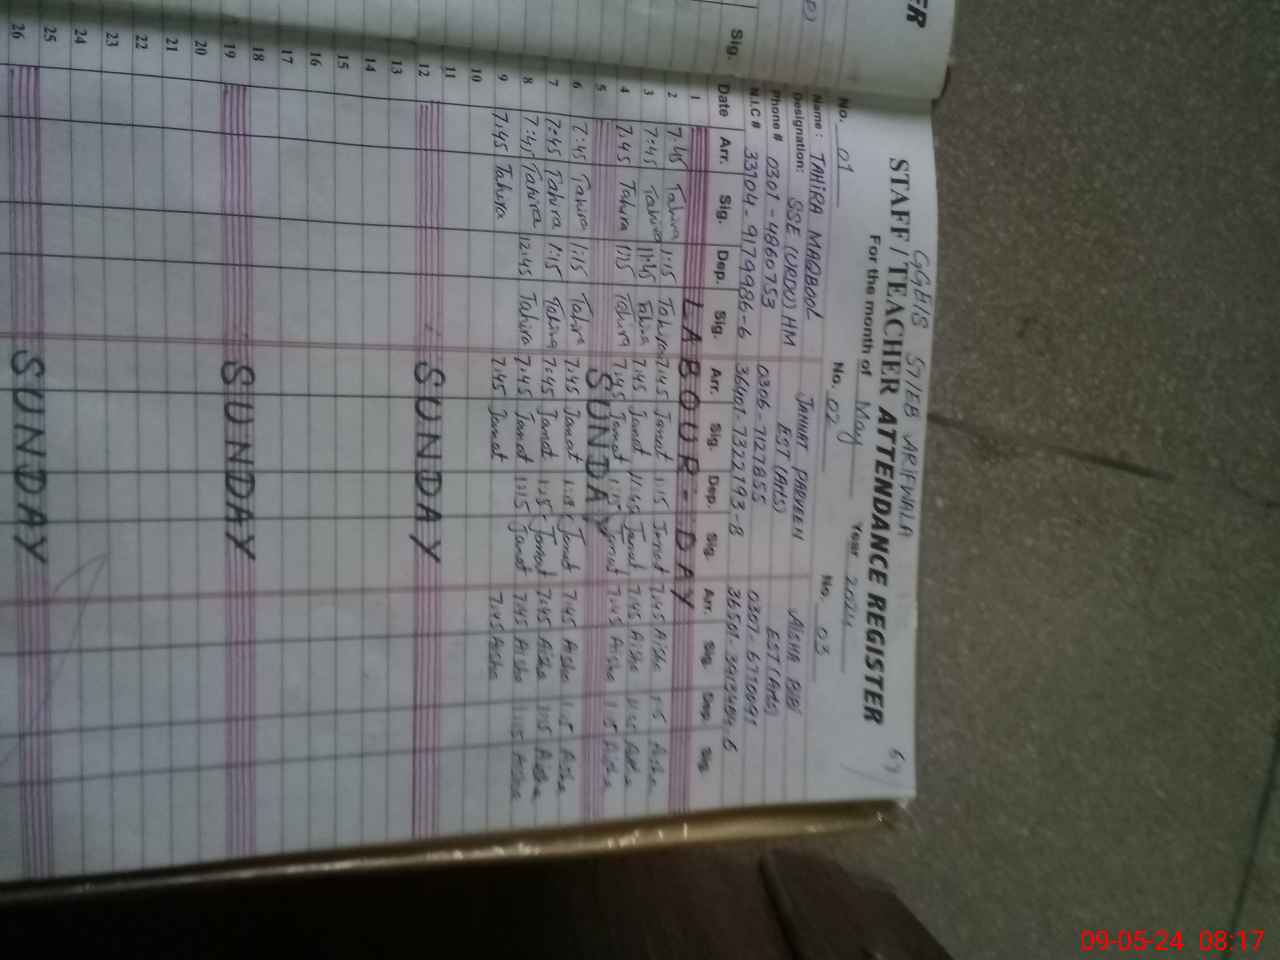 ER
Sig.
GGEIS 57/EB ARIFWALA
STAFF / TEACHER ATTENDANCE REGISTER
For the month of May Year 2024
No. 01 No. 02 No. 03
Name: TAHIRA MAQBOOL JANNAT PARVEEN AISHA BIBI
Designation: SSE (URDU) HM EST (Arts) EST (Arts)
Phone # 0301-4860753 0306-7127855
N.I.C # 33104-9179986-6 36401-7322793-8
Date Arr. Sig. Dep. Sig. Arr. Sig. Dep. Sig. Arr. Sig. Dep. Sig.
1 LABOUR-DAY
2 7:45 Tahira 1:15 Tahira 7:45 Janat 1:15 Janat 7:45 Aisha 1:15 Aisha
3 7:45 Tahira 11:45 Tahira 7:45 Janat 11:45 Janat 7:45 Aisha Aisha
4 7:45 Tahira 1:15 Tahira 7:45 Janat 1:15 Janat 7:45 Aisha 1:15 Aisha
5 SUNDAY
6 7:45 Tahira 1:15 Tahira 7:45 Janat Janat 7:45 Aisha 1:15 Aisha
7 7:45 Tahira 1:15 Tahira 7:45 Janat Janat 7:45 Aisha 1:15 Aisha
8 7:45 Tahira 12:45 Tahira 7:45 Janat 1:15 Janat 7:45 Aisha 1:15 Aisha
9 7:45 Tahira 7:45 Janat 7:45 Aisha
10
11
12 SUNDAY
13
14
15
16
17
18
19 SUNDAY
20
21
22
23
24
25
26 SUNDAY
09-05-24 08:17